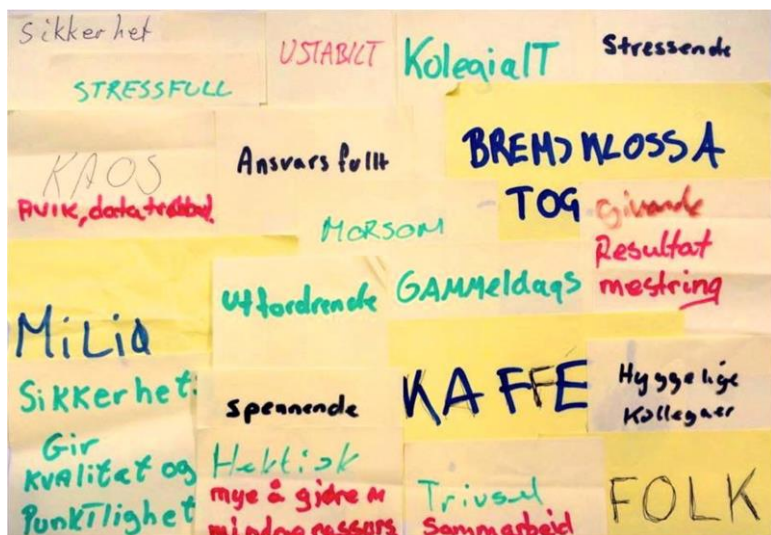 Sikkerhet
STRESSFULL
USTABILT
KolegialT
Stressende
KAOS
AVIK, data
Ansvarsfullt
BREMSKLOSSA
TOG
MORSOM
Givande
Resultat
mestring
Utfordrende
GAMMeldags
MiLiO
Sikkerhet:
Gir
KVAlitet og
PunkTlighet
Spennende
KAFFE
Hyggelige
Kollegaer
Hektisk
mye å gjøre m
Trivsel
Sammarbeid
FOLK